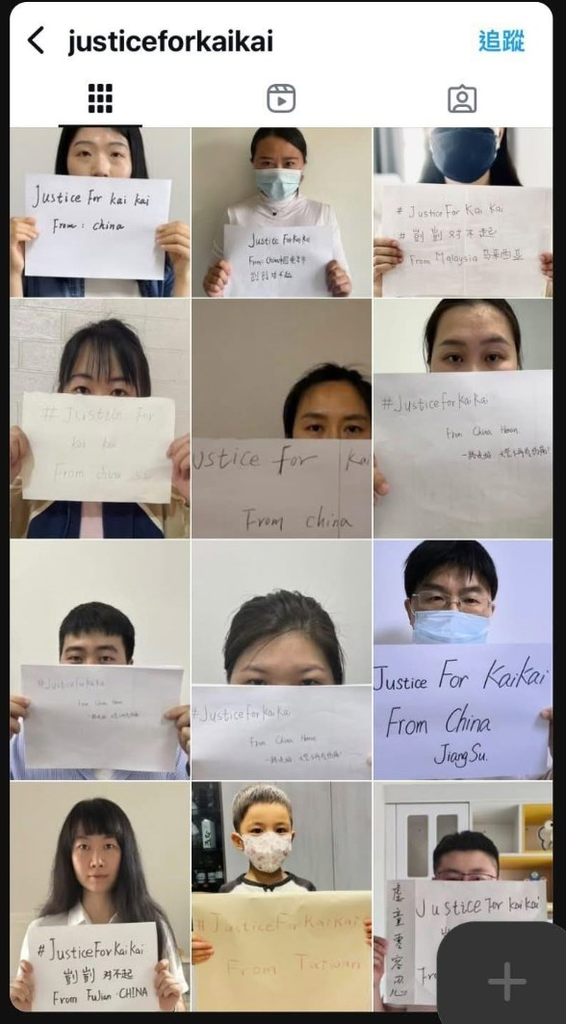 justiceforkaikai
追蹤
Justice For kai kai
From : china
Justice ForKaiKai
From:
# Justice For Kai Kai
# 剴剴 对不起
From Malaysia 马来西亚
# Justice for
kai kai
From china
ustice for kai
From china
#JusticeForKaiKai
From China Henan.
#JusticeForKaiKai
From China Henan
#JusticeForKaiKai
From China Henan
Justice For KaiKai
From China
JiangSu.
#JusticeForKaiKai
剴剴 对不起
From FuJian·CHINA
#JusticeForKaiKai
From Taiwan
Justice For kaikai
虐童零容忍